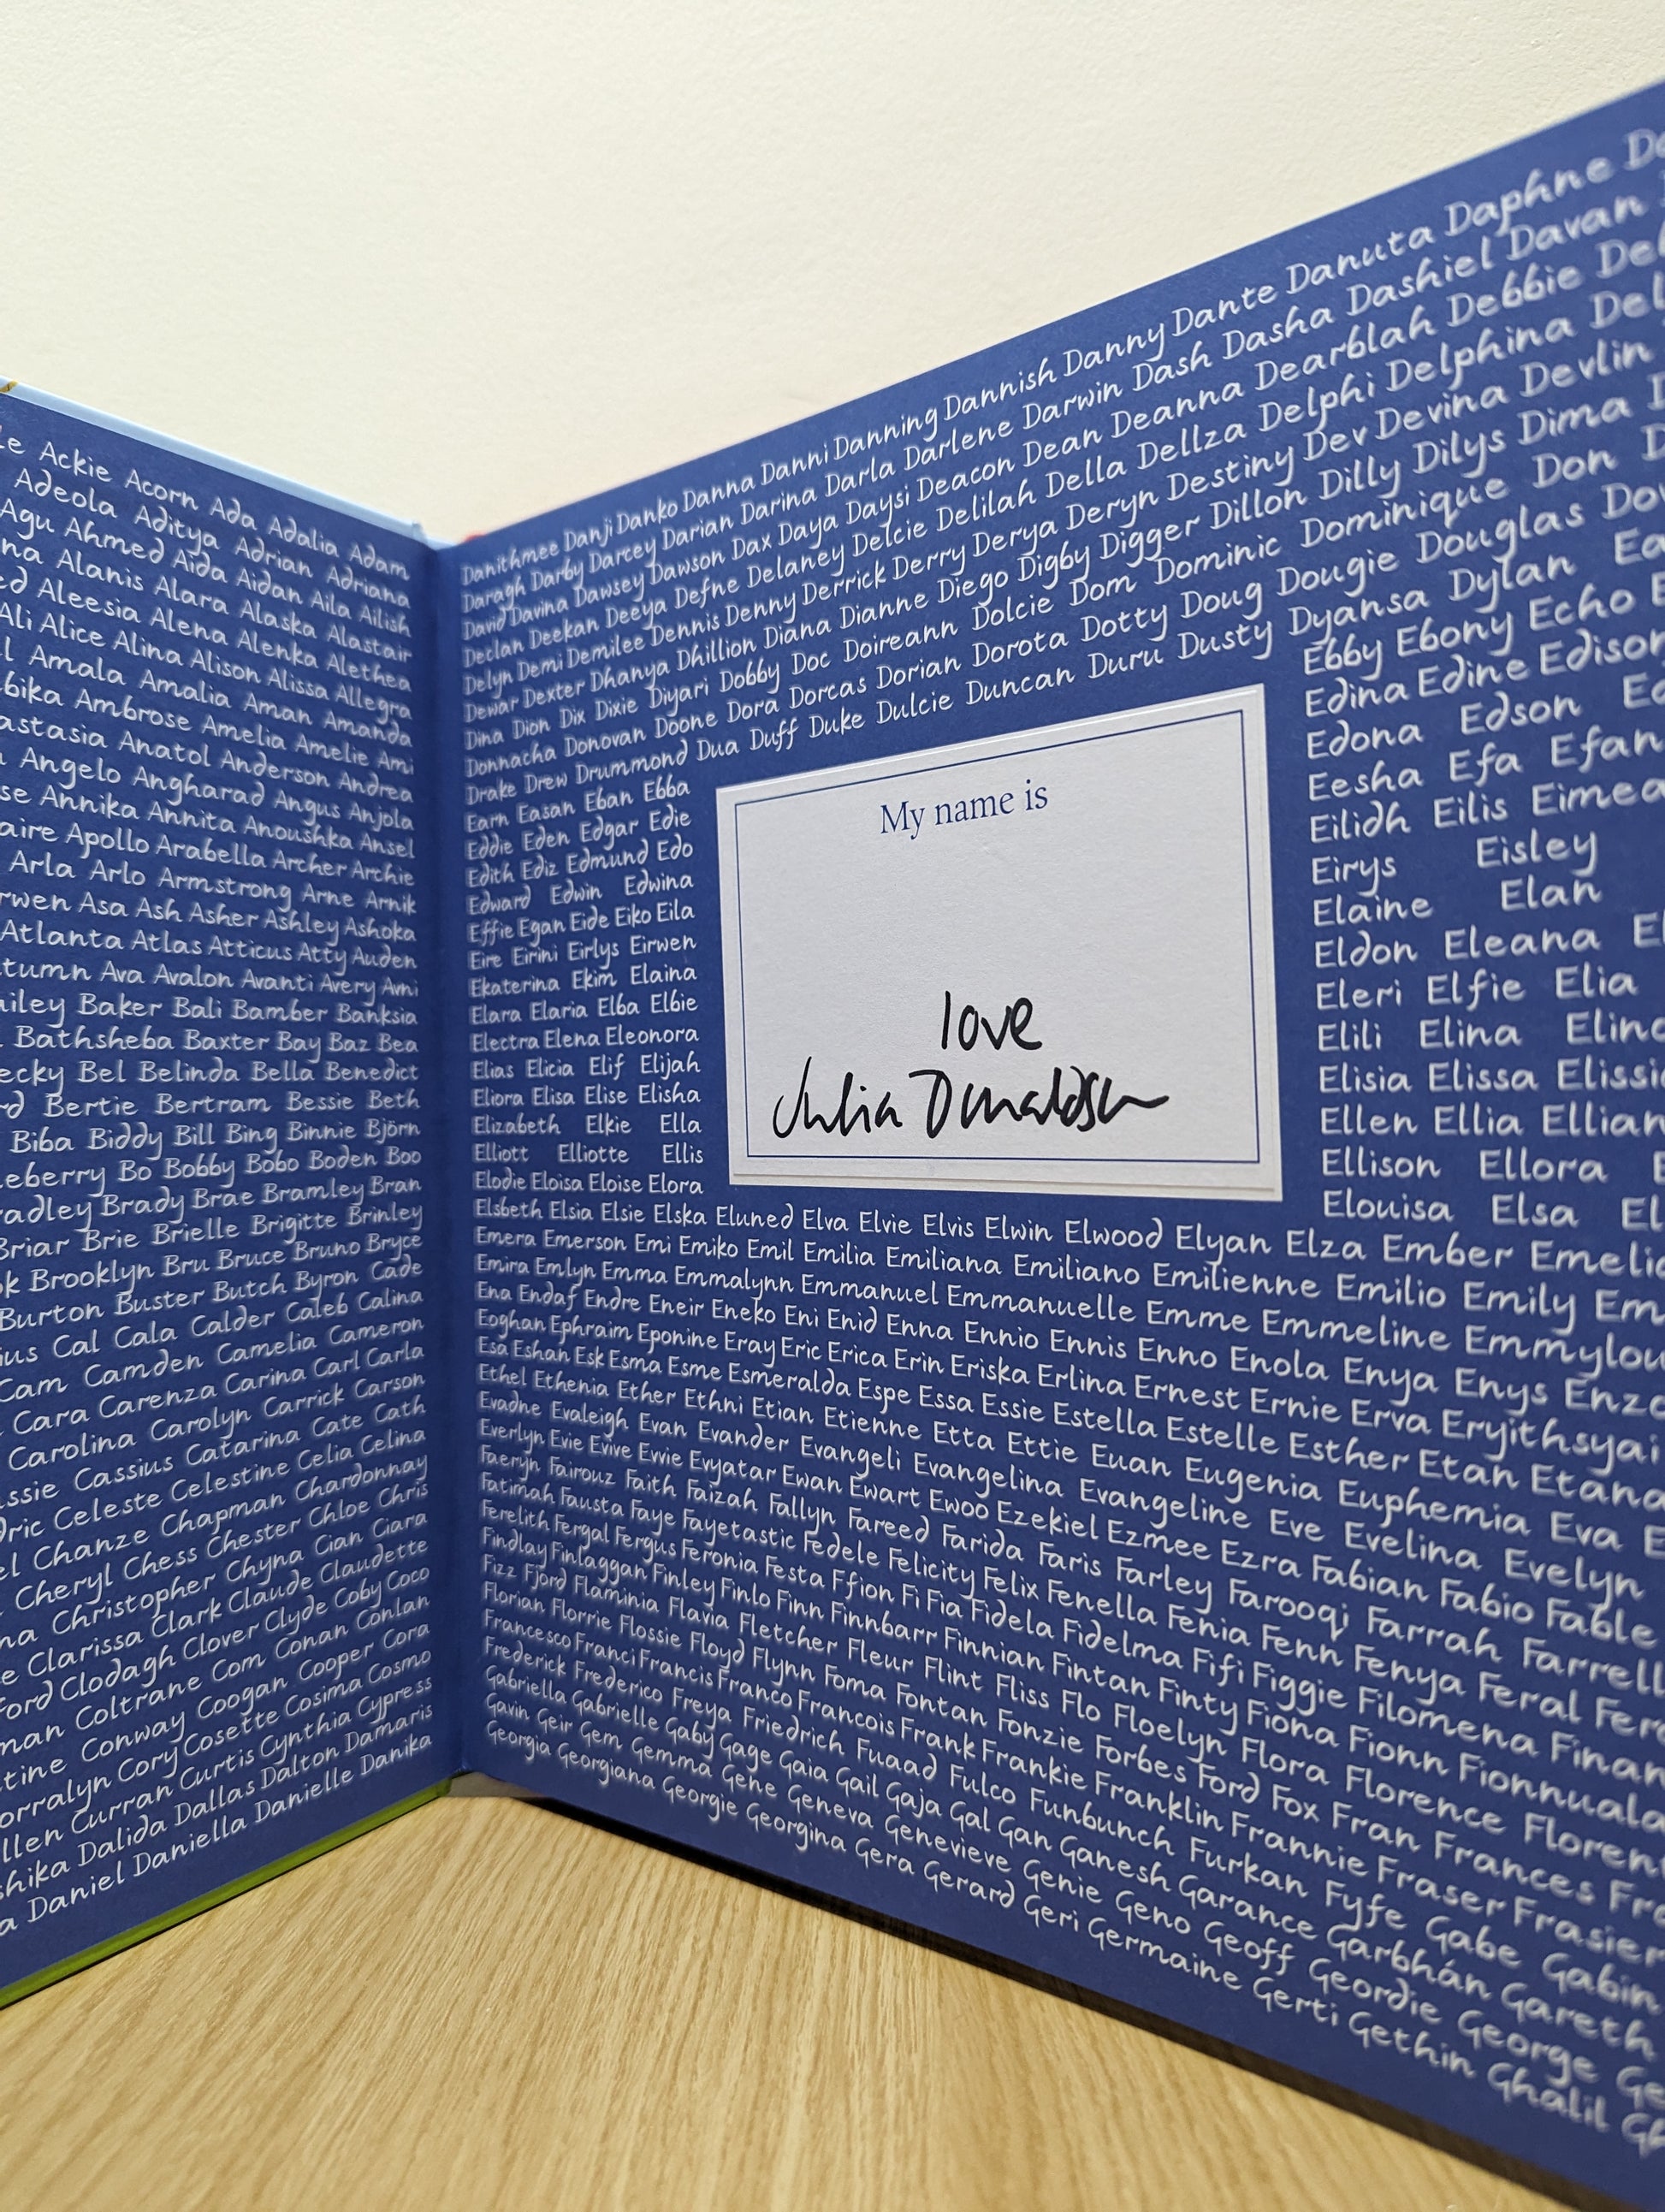 Ackie Acorn Ada Adalia Adam
Adeola Aditya Adrian Adriana
Agu Ahmed Aida Aidan Aila Ailish
Alanis Alara Alaska Alastair
Aleesia Alena Alenka Alethea
Ali Alice Alina Alison Alissa Allegra
Amala Amalia Aman Amanda
Ambrose Amelia Amelie Ami
Anatol Anderson Andrea
Angelo Angharad Angus Anjola
Annika Annita Anoushka Ansel
Apollo Arabella Archer Archie
Arla Arlo Armstrong Arne Arnik
Asa Ash Asher Ashley Ashoka
Atlanta Atlas Atticus Atty Auden
Ava Avalon Avanti Avery Avni
Baker Bali Bamber Banksia
Bathsheba Baxter Bay Baz Bea
Bel Belinda Bella Benedict
Bertie Bertram Bessie Beth
Biba Biddy Bill Bing Binnie Björn
Bo Bobby Bobo Boden Boo
Brady Brae Bramley Bran
Briar Brie Brielle Brigitte Brinley
Brooklyn Bru Bruce Bruno Bryce
Burton Buster Butch Byron Cade
Cal Cala Calder Caleb Calina
Cam Camden Camelia Cameron
Cara Carenza Carina Carl Carla
Carolina Carolyn Carrick Carson
Cassius Catarina Cate Cath
Celeste Celestine Celia Celina
Chanze Chapman Chardonnay
Cheryl Chess Chester Chloe Chris
Christopher Chyna Cian Ciara
Clarissa Clark Claude Claudette
Clodagh Clover Clyde Coby Coco
Coltrane Com Conan Conlan
Conway Coogan Cooper Cora
Cory Cosette Cosima Cosmo
Curran Curtis Cynthia Cypress
Dalida Dallas Dalton Damaris
Daniel Daniella Danielle Danika
Danithmee Danji Danko Danna Danni Danning Dannish Danny Dante Danuta Daphne
Daragh Darby Darcey Darian Darina Darla Darlene Darwin Dash Dasha Dashiel Davan
David Davina Dawsey Dawson Dax Daya Daysi Deacon Dean Deanna Dearblah Debbie
Declan Deekan Deeya Defne Delaney Delcie Delilah Della Dellza Delphi Delphina
Delyn Demi Demilee Dennis Denny Derrick Derry Derya Deryn Destiny Dev Devina Devlin
Dewar Dexter Dhanya Dhillion Diana Dianne Diego Digby Digger Dillon Dilly Dilys Dima
Dina Dion Dix Dixie Diyari Dobby Doc Doireann Dolcie Dom Dominic Dominique Don
Donnacha Donovan Doone Dora Dorcas Dorian Dorota Dotty Doug Dougie Douglas
Drake Drew Drummond Dua Duff Duke Dulcie Duncan Duru Dusty Dyansa Dylan
Earn Easan Eban Ebba
Ebby Ebony Echo
Eddie Eden Edgar Edie
Edina Edine Edison
Edith Ediz Edmund Edo
Edona Edson
Edward Edwin Edwina
Eesha Efa Efan
Effie Egan Eide Eiko Eila
Eilidh Eilis
Eire Eirini Eirlys Eirwen
Eirys Eisley
Ekaterina Ekim Elaina
Elaine Elan
Elara Elaria Elba Elbie
Eldon Eleana
Electra Elena Eleonora
Eleri Elfie Elia
Elias Elicia Elif Elijah
Elili Elina
Eliora Elisa Elise Elisha
Elisia Elissa
Elizabeth Elkie Ella
Ellen Ellia
Elliott Elliotte Ellis
Ellison Ellora
Elodie Eloisa Eloise Elora
Elouisa Elsa
My name is
love
Julia Donaldson
Elsbeth Elsia Elsie Elska Eluned Elva Elvie Elvis Elwin Elwood Elyan Elza Ember
Emera Emerson Emi Emiko Emil Emilia Emiliana Emiliano Emilienne Emilio Emily
Emira Emlyn Emma Emmalynn Emmanuel Emmanuelle Emme Emmeline Emmylou
Ena Endaf Endre Eneir Eneko Eni Enid Enna Ennio Ennis Enno Enola Enya Enys
Eoghan Ephraim Eponine Eray Eric Erica Erin Eriska Erlina Ernest Ernie Erva Eryithsyai
Esa Eshan Esk Esma Esme Esmeralda Espe Essa Essie Estella Estelle Esther Etan
Ethel Ethenia Ether Ethni Etian Etienne Etta Ettie Euan Eugenia Euphemia Eva
Evadne Evaleigh Evan Evander Evangeli Evangelina Evangeline Eve Evelina Evelyn
Everlyn Evie Evive Evvie Evyatar Ewan Ewart Ewoo Ezekiel Ezmee Ezra Fabian Fabio Fable
Faeryn Fairouz Faith Faizah Fallyn Fareed Farida Faris Farley Farooqi Farrah Farrell
Fatimah Fausta Faye Fayetastic Fedele Felicity Felix Fenella Fenia Fenn Fenya Feral
Ferelith Fergal Fergus Feronia Festa Ffion Fi Fia Fidela Fidelma Fifi Figgie Filomena
Findlay Finlaggan Finley Finlo Finn Finnbarr Finnian Fintan Finty Fiona Fionn Fionnuala
Fizz Fjord Flaminia Flavia Fletcher Fleur Flint Fliss Flo Floelyn Flora Florence
Florian Florrie Flossie Floyd Flynn Foma Fontan Fonzie Forbes Ford Fox Fran Frances
Francesco Franci Francis Franco Francois Frank Frankie Franklin Frannie Fraser Frasier
Frederick Frederico Freya Friedrich Fuaad Fulco Funbunch Furkan Fyfe Gabe Gabin
Gabriella Gabrielle Gaby Gage Gaia Gail Gaja Gal Gan Ganesh Garance Garbhán Gareth
Gavin Geir Gem Gemma Gene Geneva Genevieve Genie Geno Geoff Geordie George
Georgia Georgiana Georgie Georgina Gera Gerard Geri Germaine Gerti Gethin Ghalil